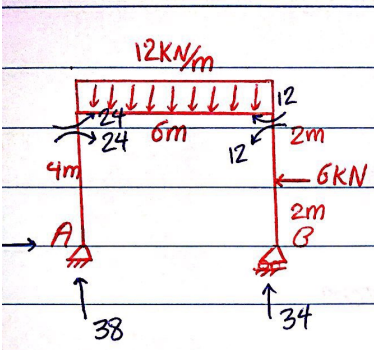 12KN/m
24 12
24 6m 12 2m
4m 6KN
2m
A B
38 34